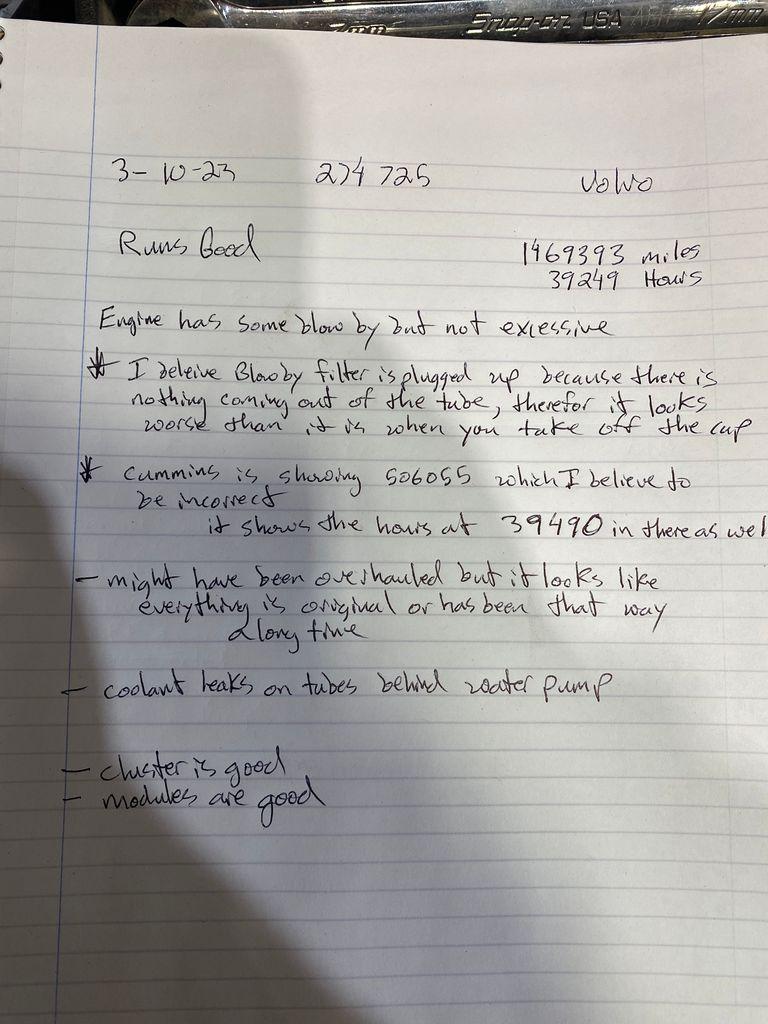 Snap-on USA 17mm
7mm
3-10-23 274725 Volvo
Runs Good 1469393 miles
39249 Hours
Engine has some blow by but not excessive
* I beleive Blowby filter is plugged up because there is
nothing coming out of the tube, therefor it looks
worse than it is when you take off the cap
* Cummins is showing 506055 which I believe to
be incorrect
it shows the hours at 39490 in there as well
- might have been overhauled but it looks like
everything is original or has been that way
a long time
- coolant leaks on tubes behind water pump
- cluster is good
- modules are good